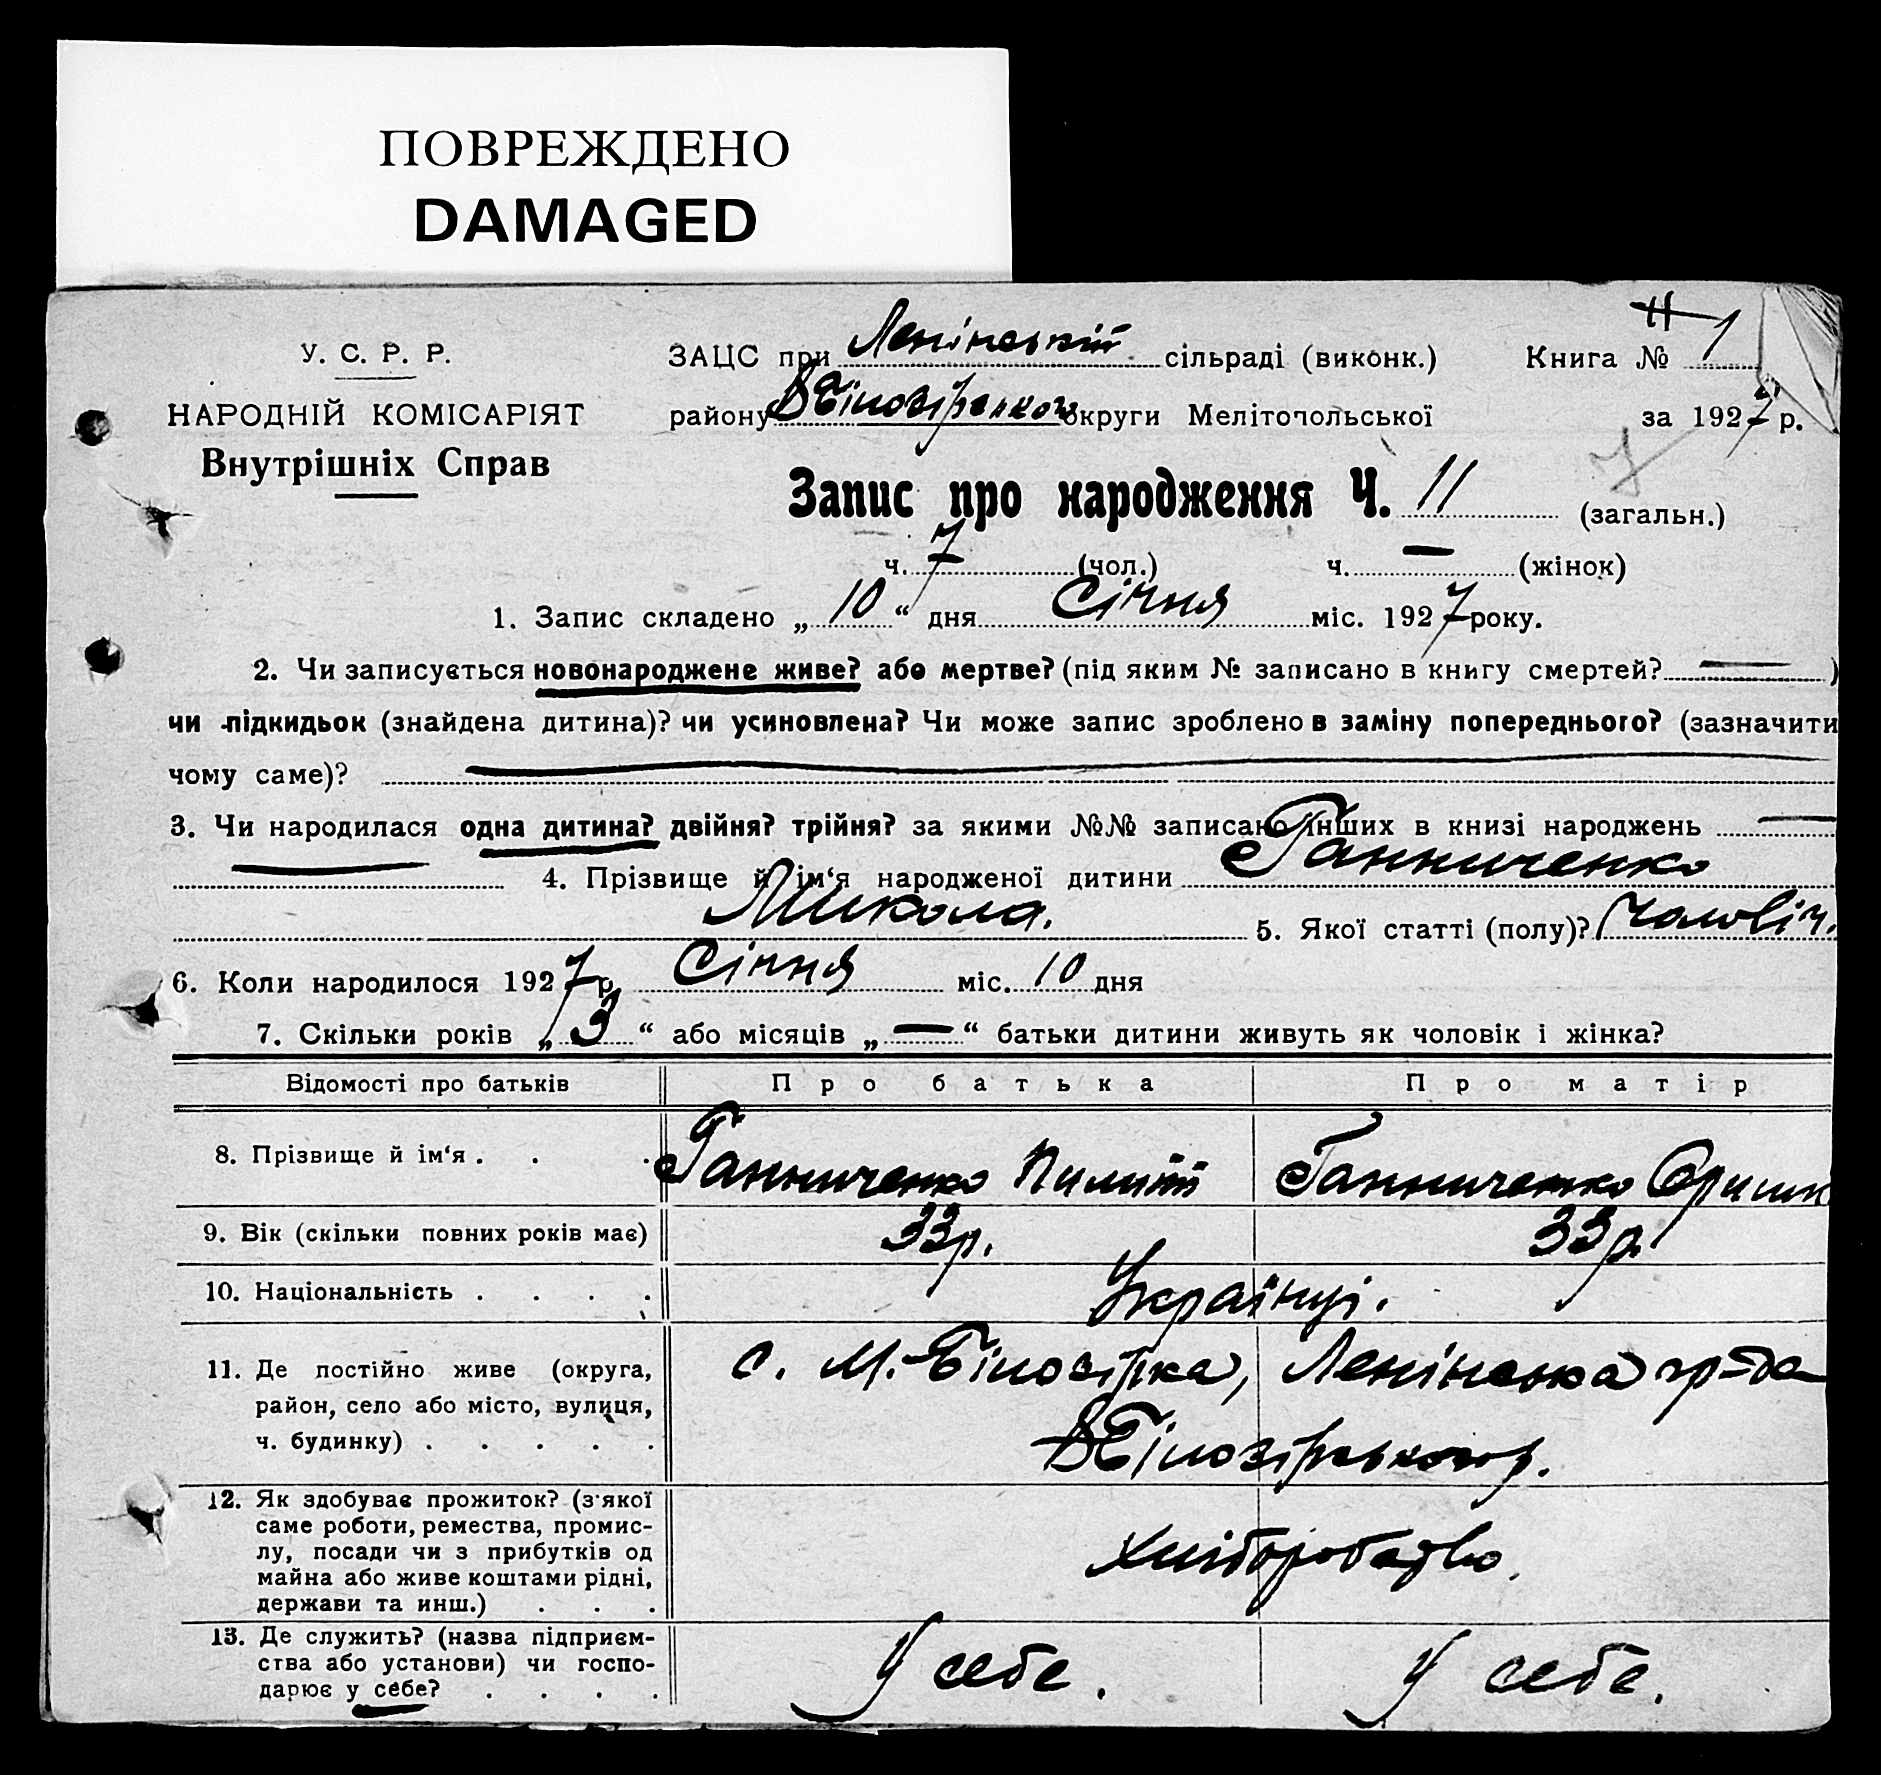 ПОВРЕЖДЕНО
DAMAGED
У. С. Р. Р.
НАРОДНІЙ КОМІСАРІЯТ
Внутрішніх Справ
ЗАЦС при Ленінській сільраді (виконк.) Книга № 1
району В Білозірського округи Мелітопольської за 1927 р.
7
Запис про народження Ч. 11 (загальн.)
ч. 7 (чол.) ч. — (жінок)
1. Запис складено „ 10 “ дня Січня міс. 1927 року.
2. Чи записується новонароджене живе? або мертве? (під яким № записано в книгу смертей? — )
чи підкидьок (знайдена дитина)? чи усиновлена? Чи може запис зроблено в заміну попереднього? (зазначити
чому саме)? —
3. Чи народилася одна дитина? двійня? трійня? за якими №№ записано інших в книзі народжень —
— 4. Прізвище й ім‘я народженої дитини Ганниченко
Микола. 5. Якої статті (полу)? Чоловіч.
6. Коли народилося 1927 р. Січня міс. 10 дня
7. Скільки років „ 3 “ або місяців „ — “ батьки дитини живуть як чоловік і жінка?
Відомості про батьків Про батька Про матір
8. Прізвище й ім‘я . . . Ганниченко Пилип Ганниченко Оришк
9. Вік (скільки повних років має) 33 р. 33 р.
10. Національність . . . . Українці.
11. Де постійно живе (округа,
район, село або місто, вулиця,
ч. будинку) . . . . .
с. М.-Білозірка, Ленінська
В Білозірського р.
12. Як здобуває прожиток? (з якої
саме роботи, ремества, промис-
лу, посади чи з прибутків од
майна або живе коштами рідні,
держави та инш.) . . .
Хліборобство.
13. Де служить? (назва підприєм-
ства або установи) чи госпо-
дарює у себе? . . . .
У себе. У себе.